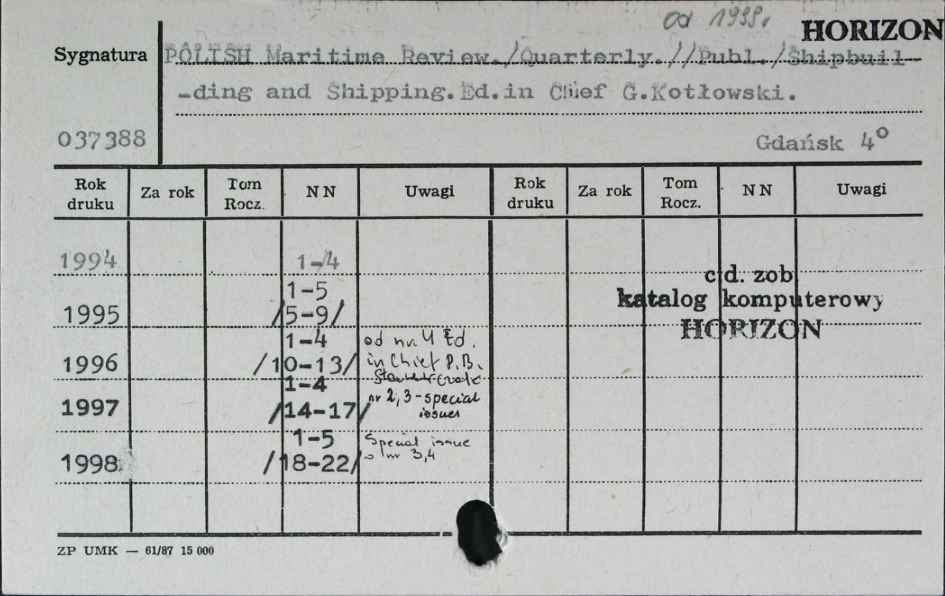 od 1998r
HORIZON
Sygnatura POLISH Maritime Review./Quarterly.//Publ./Shipbuil-
-ding and Shipping.Ed.in Chief G.Kotłowski.
037388 Gdańsk 4°
Rok druku Za rok Tom Rocz. N N Uwagi Rok druku Za rok Tom Rocz. N N Uwagi
1994 1-4
1995 1-5 /5-9/
1996 1-4 /10-13/ od nr 4 Ed. in Chief P.B.
1997 1-4 /14-17/ nr 2,3-special issues
1998 1-5 /18-22/ Special issue nr 3,4
c.d. zob
katalog komputerowy
HORIZON
ZP UMK — 61/87 15 000